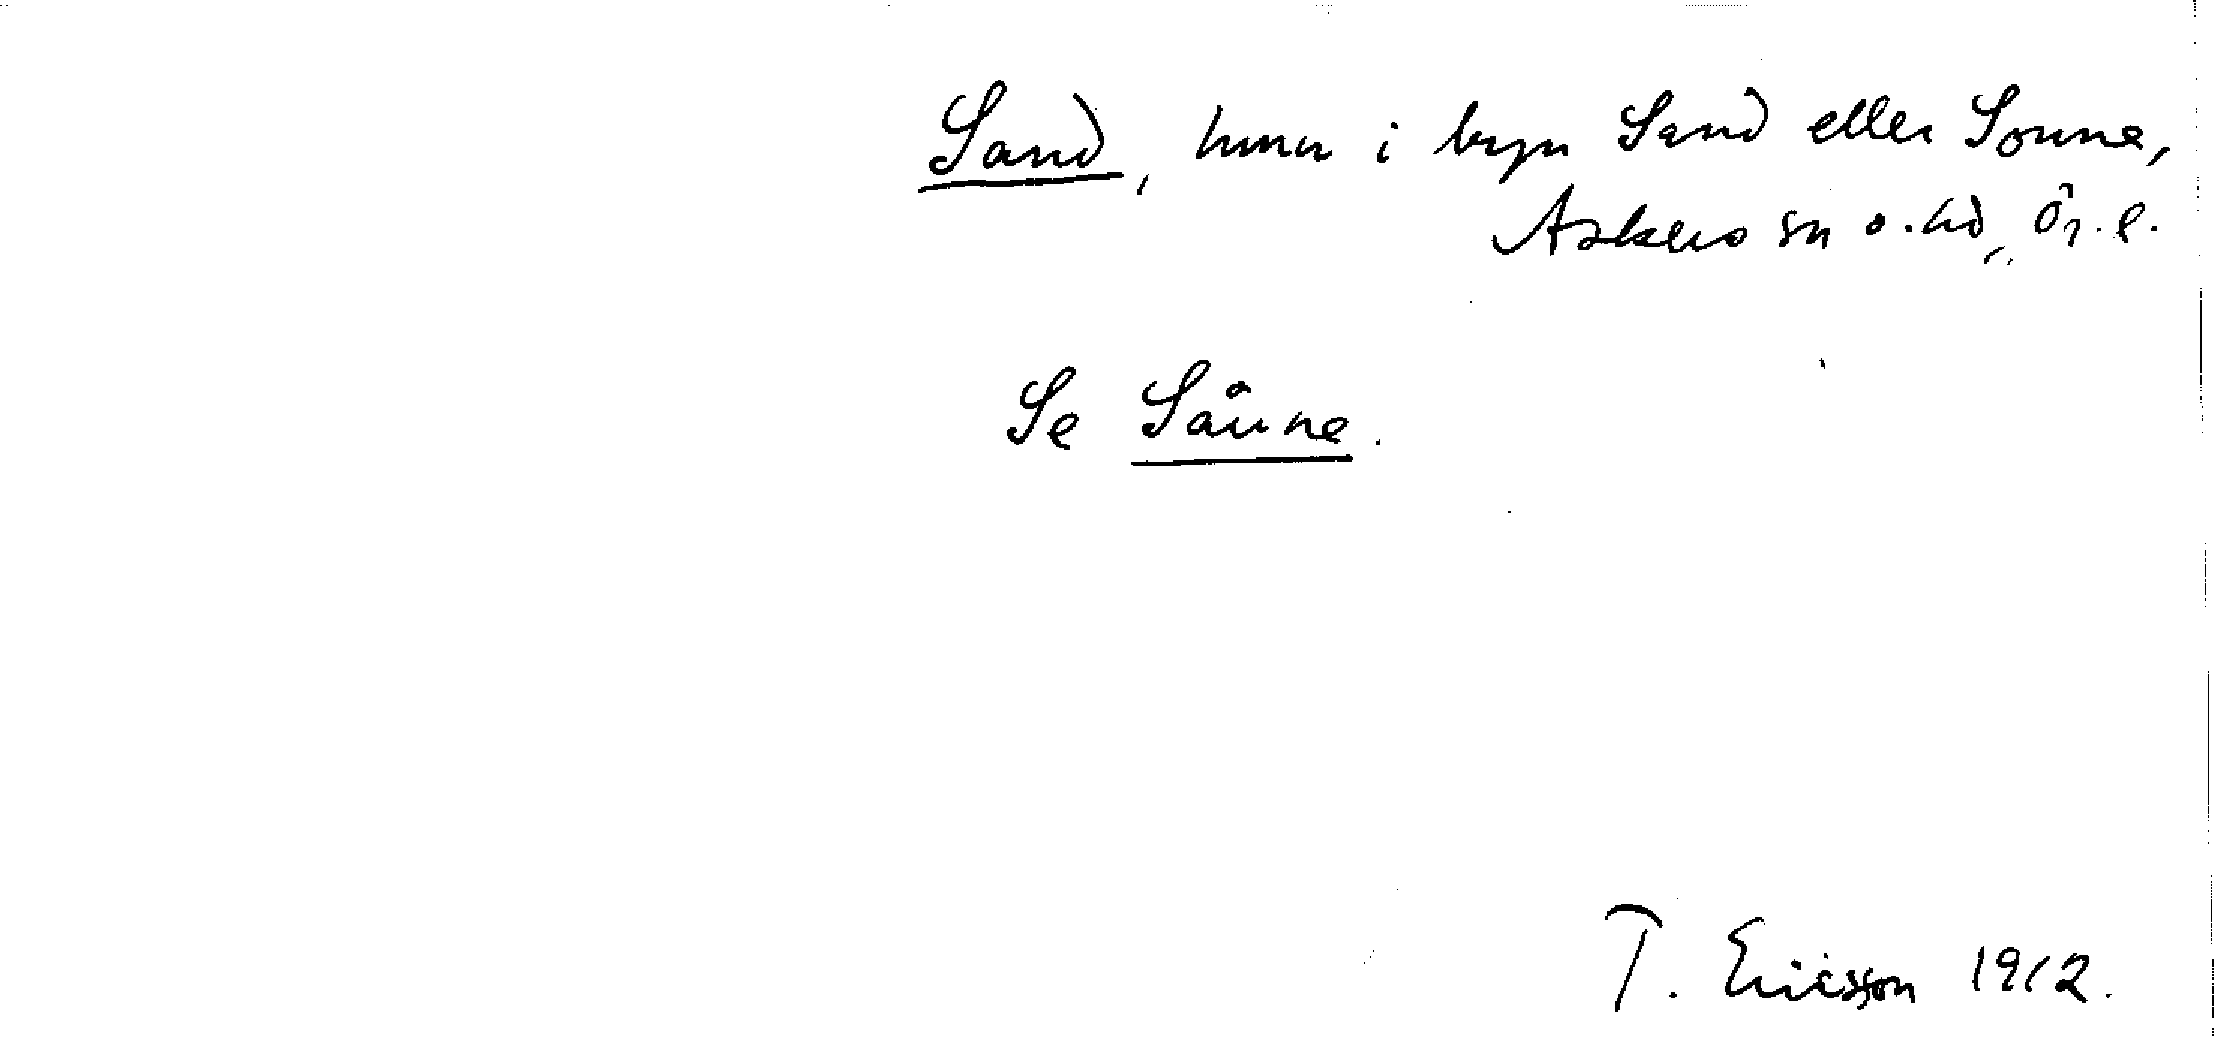 Sand, hmn i byn Sand eller Sonne,
Askers sn o. hd, Ör. l.
Se Sånne.
T. Ericsson 1912.